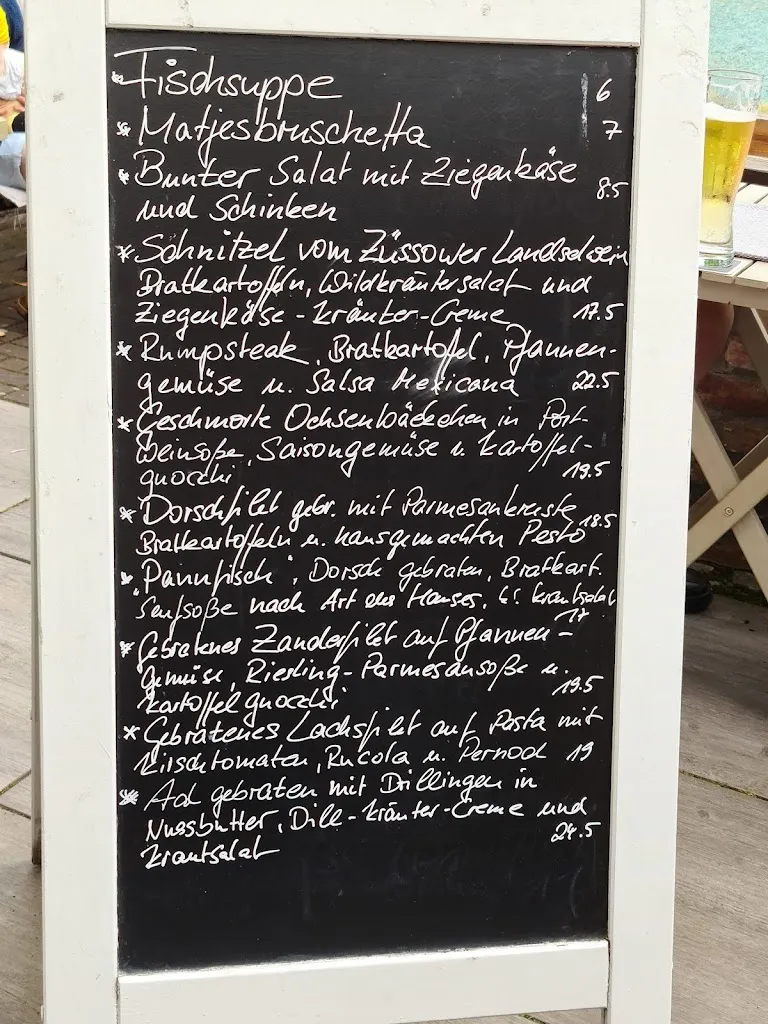 * Fischsuppe 6
* Matjesbruschetta 7
* Bunter Salat mit Ziegenkäse
und Schinken 8.5
* Schnitzel vom Züssower Landschwein
Bratkartoffeln, Wildkräutersalat und
Ziegenkäse-Kräuter-Creme 17.5
* Rumpsteak, Bratkartoffel, Pfannen-
gemüse u. Salsa Mexicana 22.5
* Geschmorte Ochsenbäckchen in Port-
weinsoße, Saisongemüse u. Kartoffel-
gnocchi 19.5
* Dorschfilet gebr. mit Parmesankruste
Bratkartoffeln u. hausgemachten Pesto 18.5
* "Pannfisch", Dorsch gebraten, Bratkart.
Senfsoße nach Art des Hauses, Krautsalat
17
* Gebratenes Zanderfilet auf Pfannen-
gemüse, Riesling-Parmesansoße u.
Kartoffelgnocchi 19.5
* Gebratenes Lachsfilet auf Pasta mit
Kirschtomaten, Rucola u. Pernod 19
* Aal gebraten mit Drillingen in
Nussbutter, Dill-Kräuter-Creme und
Krautsalat 24.5